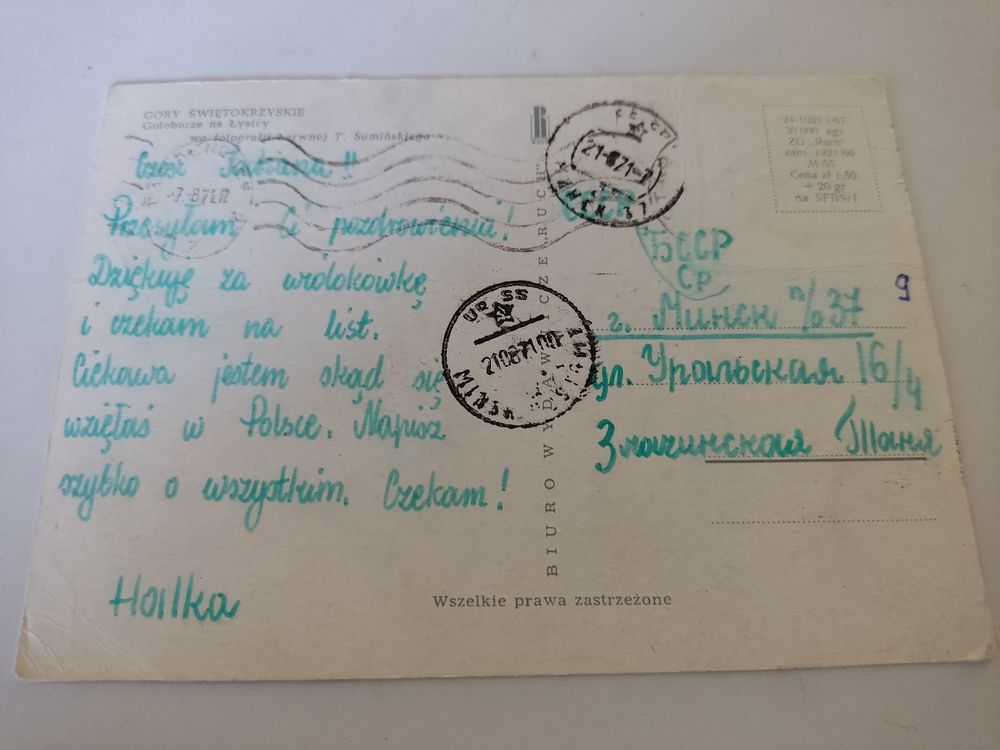 GÓRY ŚWIĘTOKRZYSKIE
Gołoborze na Łysicy
wg fotografii barwnej T. Sumińskiego
24-1031/1/67
30 000 egz
ZG „Ruch"
zam. 1321/66
M-55
Cena zł 1,50
+ 20 gr
na SFBSiI
Cześć
Przesyłam Ci pozdrowienia!
Dziękuję za widokówkę
i czekam na list.
Ciekawa jestem skąd się
wzięłaś w Polsce. Napisz
szybko o wszystkim. Czekam!
Halka
BIURO WYDAWNICZE RUCH
СССР
БССР
Ср
г. Минск п/о 37
9
ул. Уральская 16/4
Таня
21-8 71-7
210871 00
Wszelkie prawa zastrzeżone